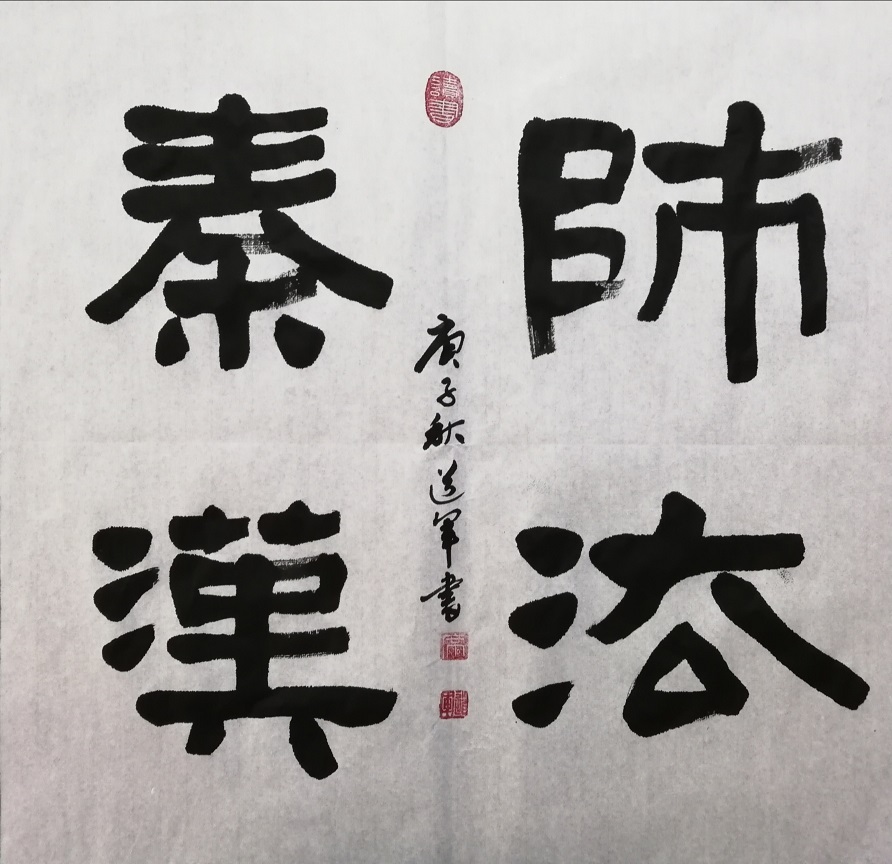 師法
秦漢
庚子秋道軍書